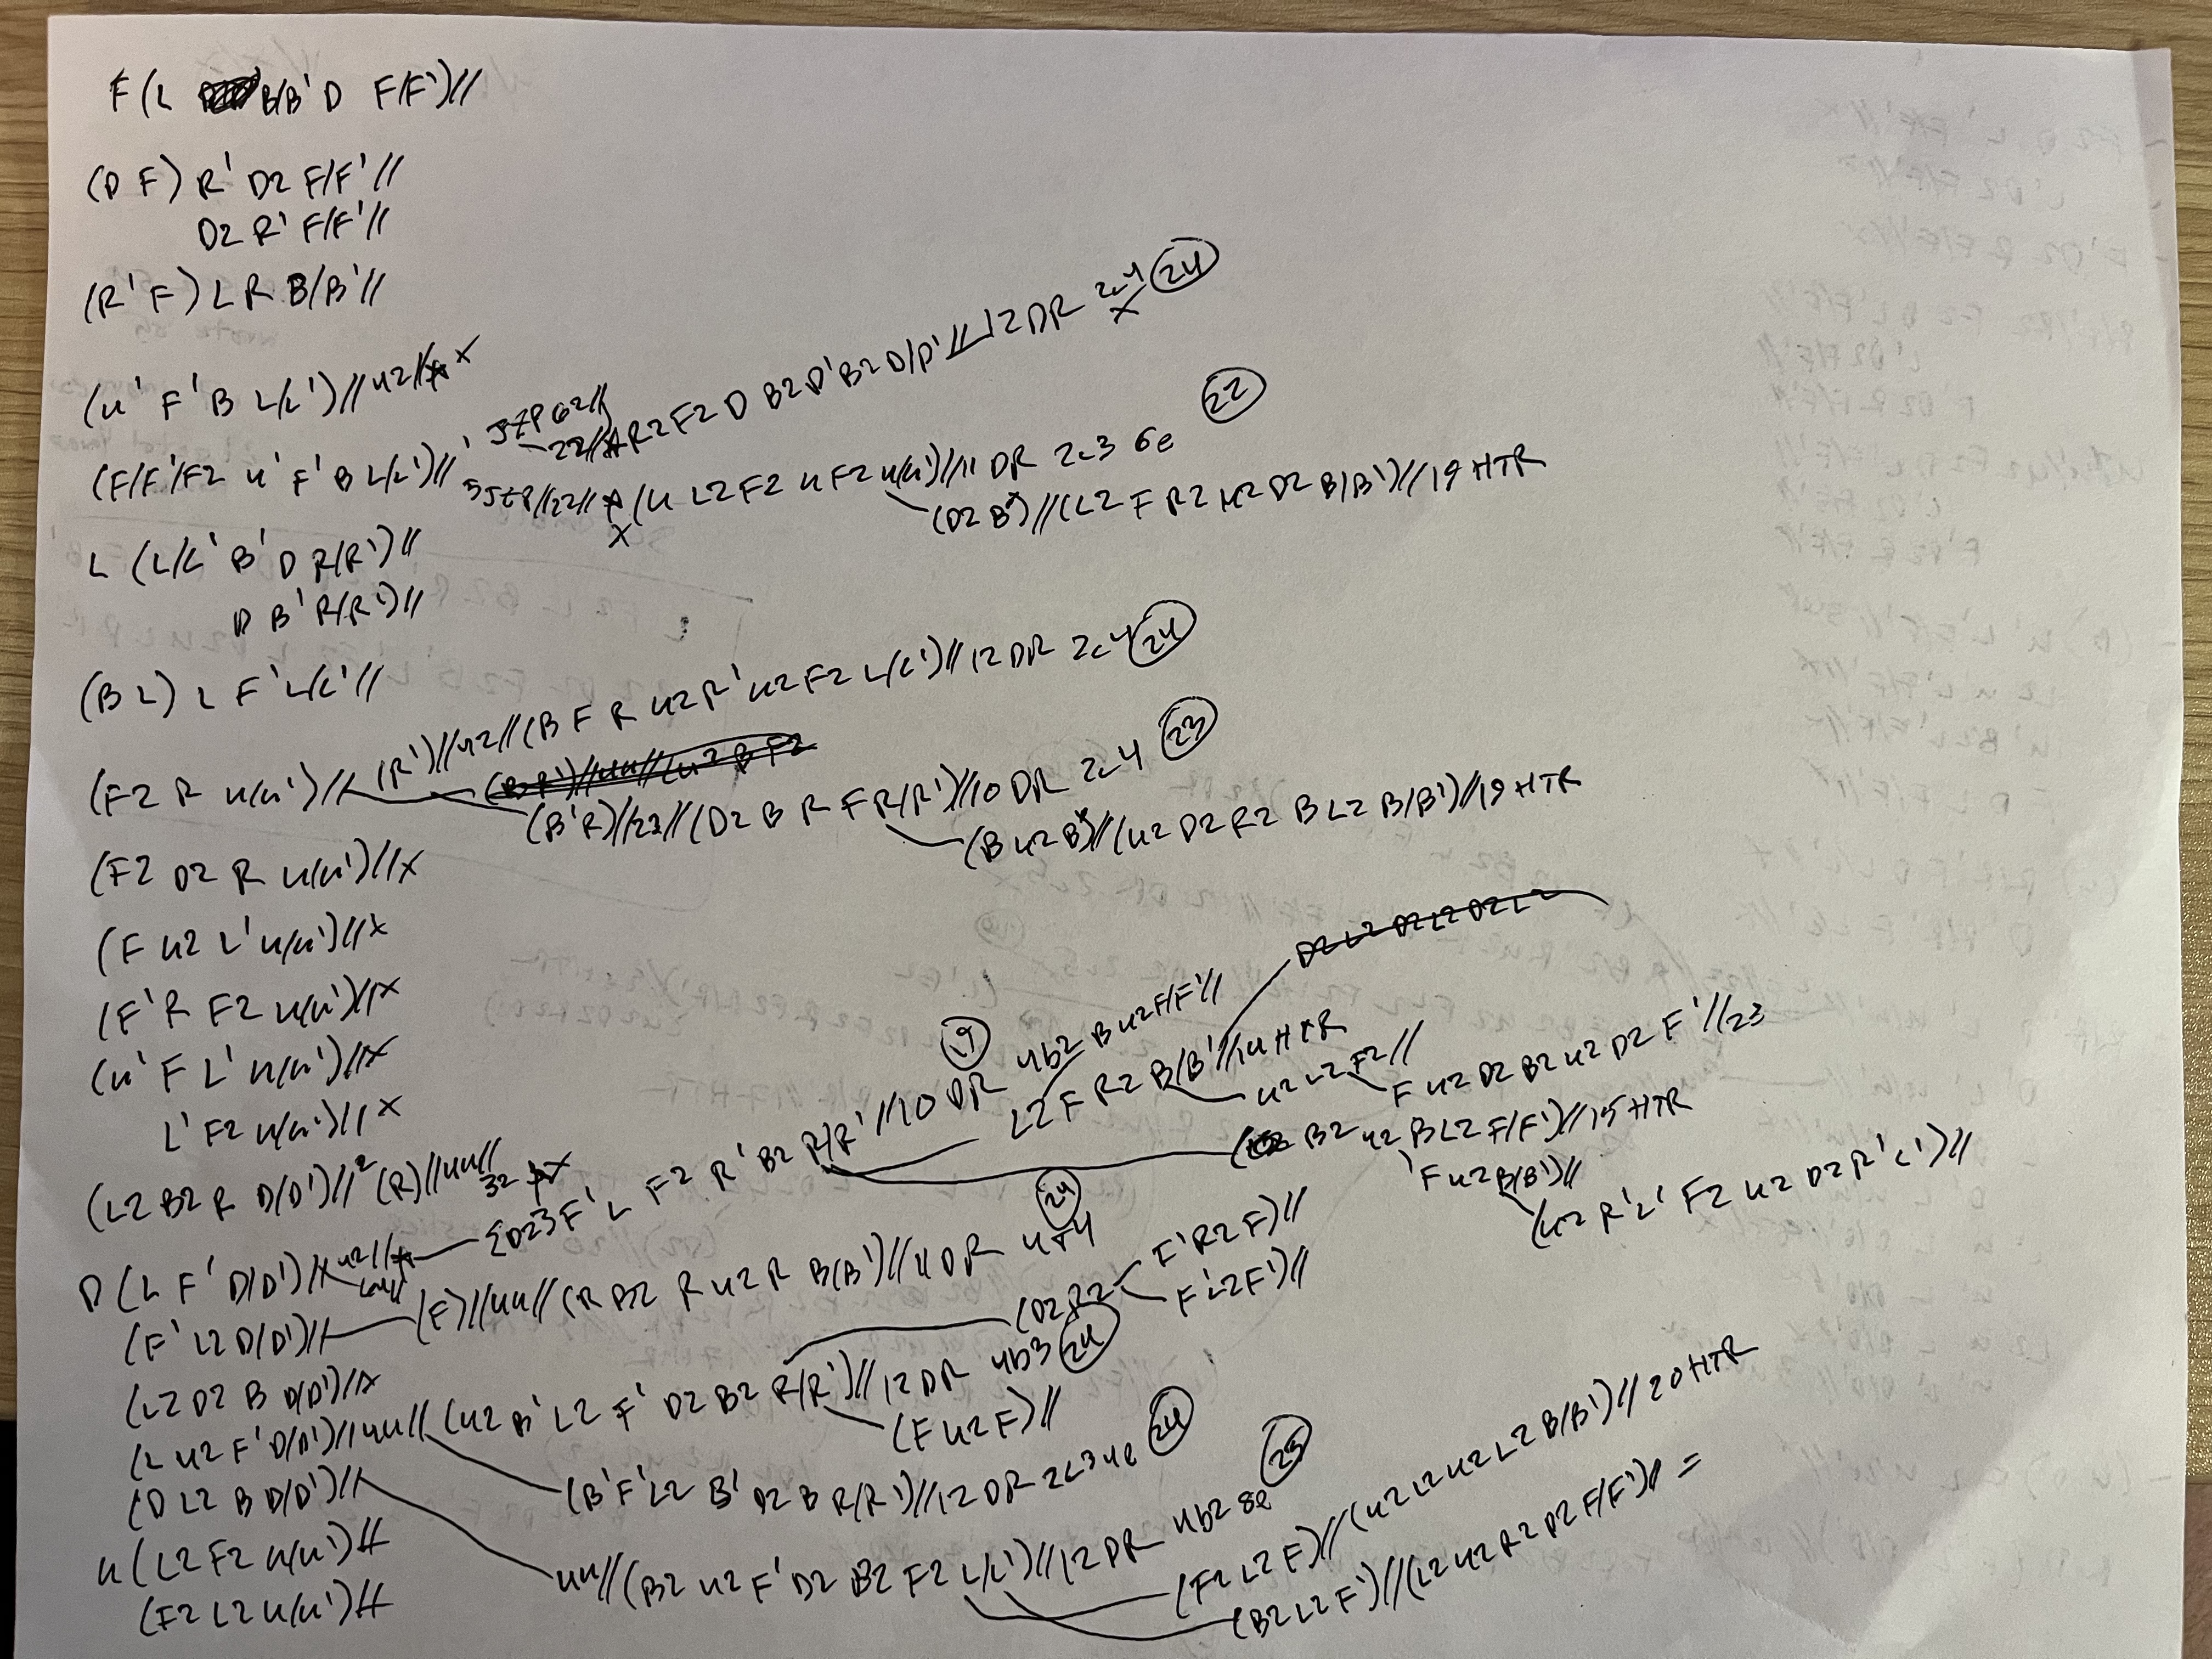 F (L B/B' D F/F')//
(D F) R' D2 F/F'//
D2 R' F/F'//
(R' F) L R B/B'//
(u' F' B L/L')//u2// x
(F/F'/F2 u' F' B L/L')//
22// R2 F2 D B2 D' B2 D/D'//12 DR 2c4 (24)
x
//22// (u L2 F2 u F2 u/u')//11 DR 2c3 6e (22)
x
(D2 B')//(L2 F R2 u2 D2 B/B')//19 HTR
L (L/L' B' D R/R')//
D B' R/R')//
(B L) L F' L/L'//
(F2 R u/u')//
(R')//u2//(B F R u2 R' u2 F2 L/L')//12 DR 2c4 (24)
(B R')//uu//(u2 B F2
(B' R)//22//(D2 B R F R/R')//10 DR 2c4 (23)
(B u2 B')//(u2 D2 R2 B L2 B/B')//19 HTR
(F2 D2 R u/u')//x
(F u2 L' u/u')//x
(F' R F2 u/u')//x
(u' F L' u/u')//x
L' F2 u/u')//x
(L2 B2 R D/D')//2(R)//uu//
32 x
D (L F' D/D')//
u2//
{D2} F' L F2 R' B2 R/R'//10 DR 4b2 B u2 F/F'//
(19)
L2 F R2 B/B'//14 HTR
D2 L2 D2 L2 D2 L2
u2 L2 F2//
F u2 D2 B2 u2 D2 F'//23
( B2 u2 B L2 F/F')//15 HTR
'F u2 B/B')//
(u2 R' L' F2 u2 D2 R' L')//
(F' L2 D/D')//
(F)//uu//(R B2 R u2 R B/B')//11 DR 4b4 (24)
(L2 D2 B D/D')//x
(L u2 F' D/D')//uu//(u2 B' L2 F' D2 B2 R/R')//12 DR 4b3 (24)
(D2 R2
F' R2 F)//
F' L2 F')//
(F u2 F)//
(B' F' L2 B' D2 B R/R')//12 DR 2c3 4e (24)
(D L2 B D/D')//
uu//(B2 u2 F' D2 B2 F2 L/L')//12 DR 4b2 8e (23)
(F2 L2 F)//(u2 L2 u2 L2 B/B')//20 HTR
(B2 L2 F')//(L2 u2 R2 D2 F/F')// =
u (L2 F2 u/u')//
(F2 L2 u/u')//